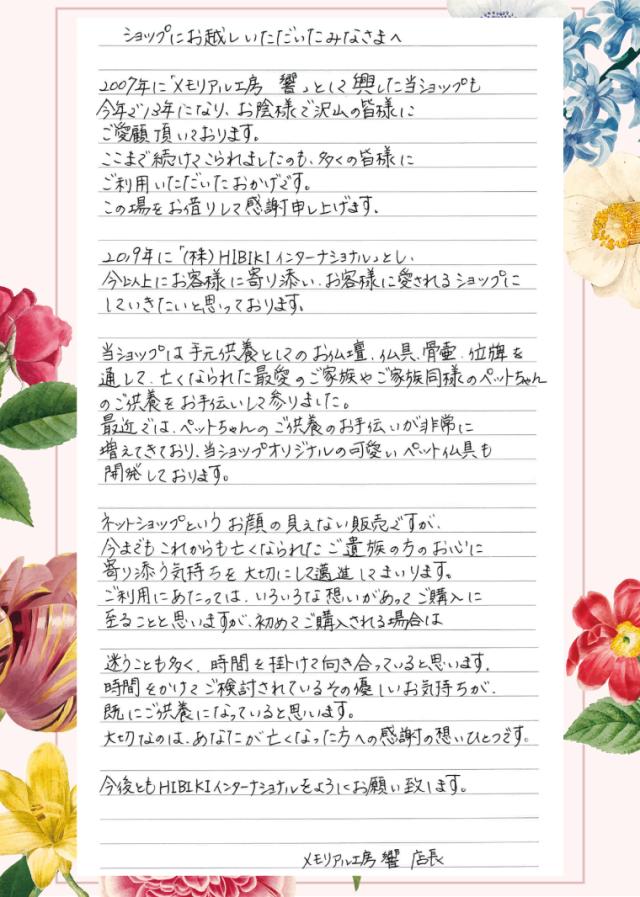 ショップにお越しいただいたみなさまへ
2007年に「メモリアル工房 響」として興した当ショップも
今年で13年になり、お陰様で沢山の皆様に
ご愛顧頂いております。
ここまで続けてこられましたのも、多くの皆様に
ご利用いただいたおかげです。
この場をお借りして感謝申し上げます、
2019年に「(株)HIBIKIインターナショナル」とし、
今以上にお客様に寄り添い、お客様に愛されるショップに
していきたいと思っております。
当ショップは手元供養としてのお仏壇、仏具、骨壷、位牌を
通して、亡くなられた最愛のご家族やご家族同様のペットちゃん
のご供養をお手伝いして参りました。
最近では、ペットちゃんのご供養のお手伝いが非常に
増えてきており、当ショップオリジナルの可愛いペット仏具も
開発しております。
ネットショップというお顔の見えない販売ですが、
今までもこれからも亡くなられたご遺族の方のお心に
寄り添う気持ちを大切にして邁進してまいります。
ご利用にあたっては、いろいろな想いがあってご購入に
至ることと思いますが、初めてご購入される場合は
迷うことも多く、時間を掛けて向き合っていると思います。
時間をかけてご検討されているその優しいお気持ちが、
既にご供養になっていると思います。
大切なのは、あなたが亡くなった方への感謝の想いひとつです。
今後ともHIBIKIインターナショナルをよろしくお願い致します。
メモリアル工房 響 店長